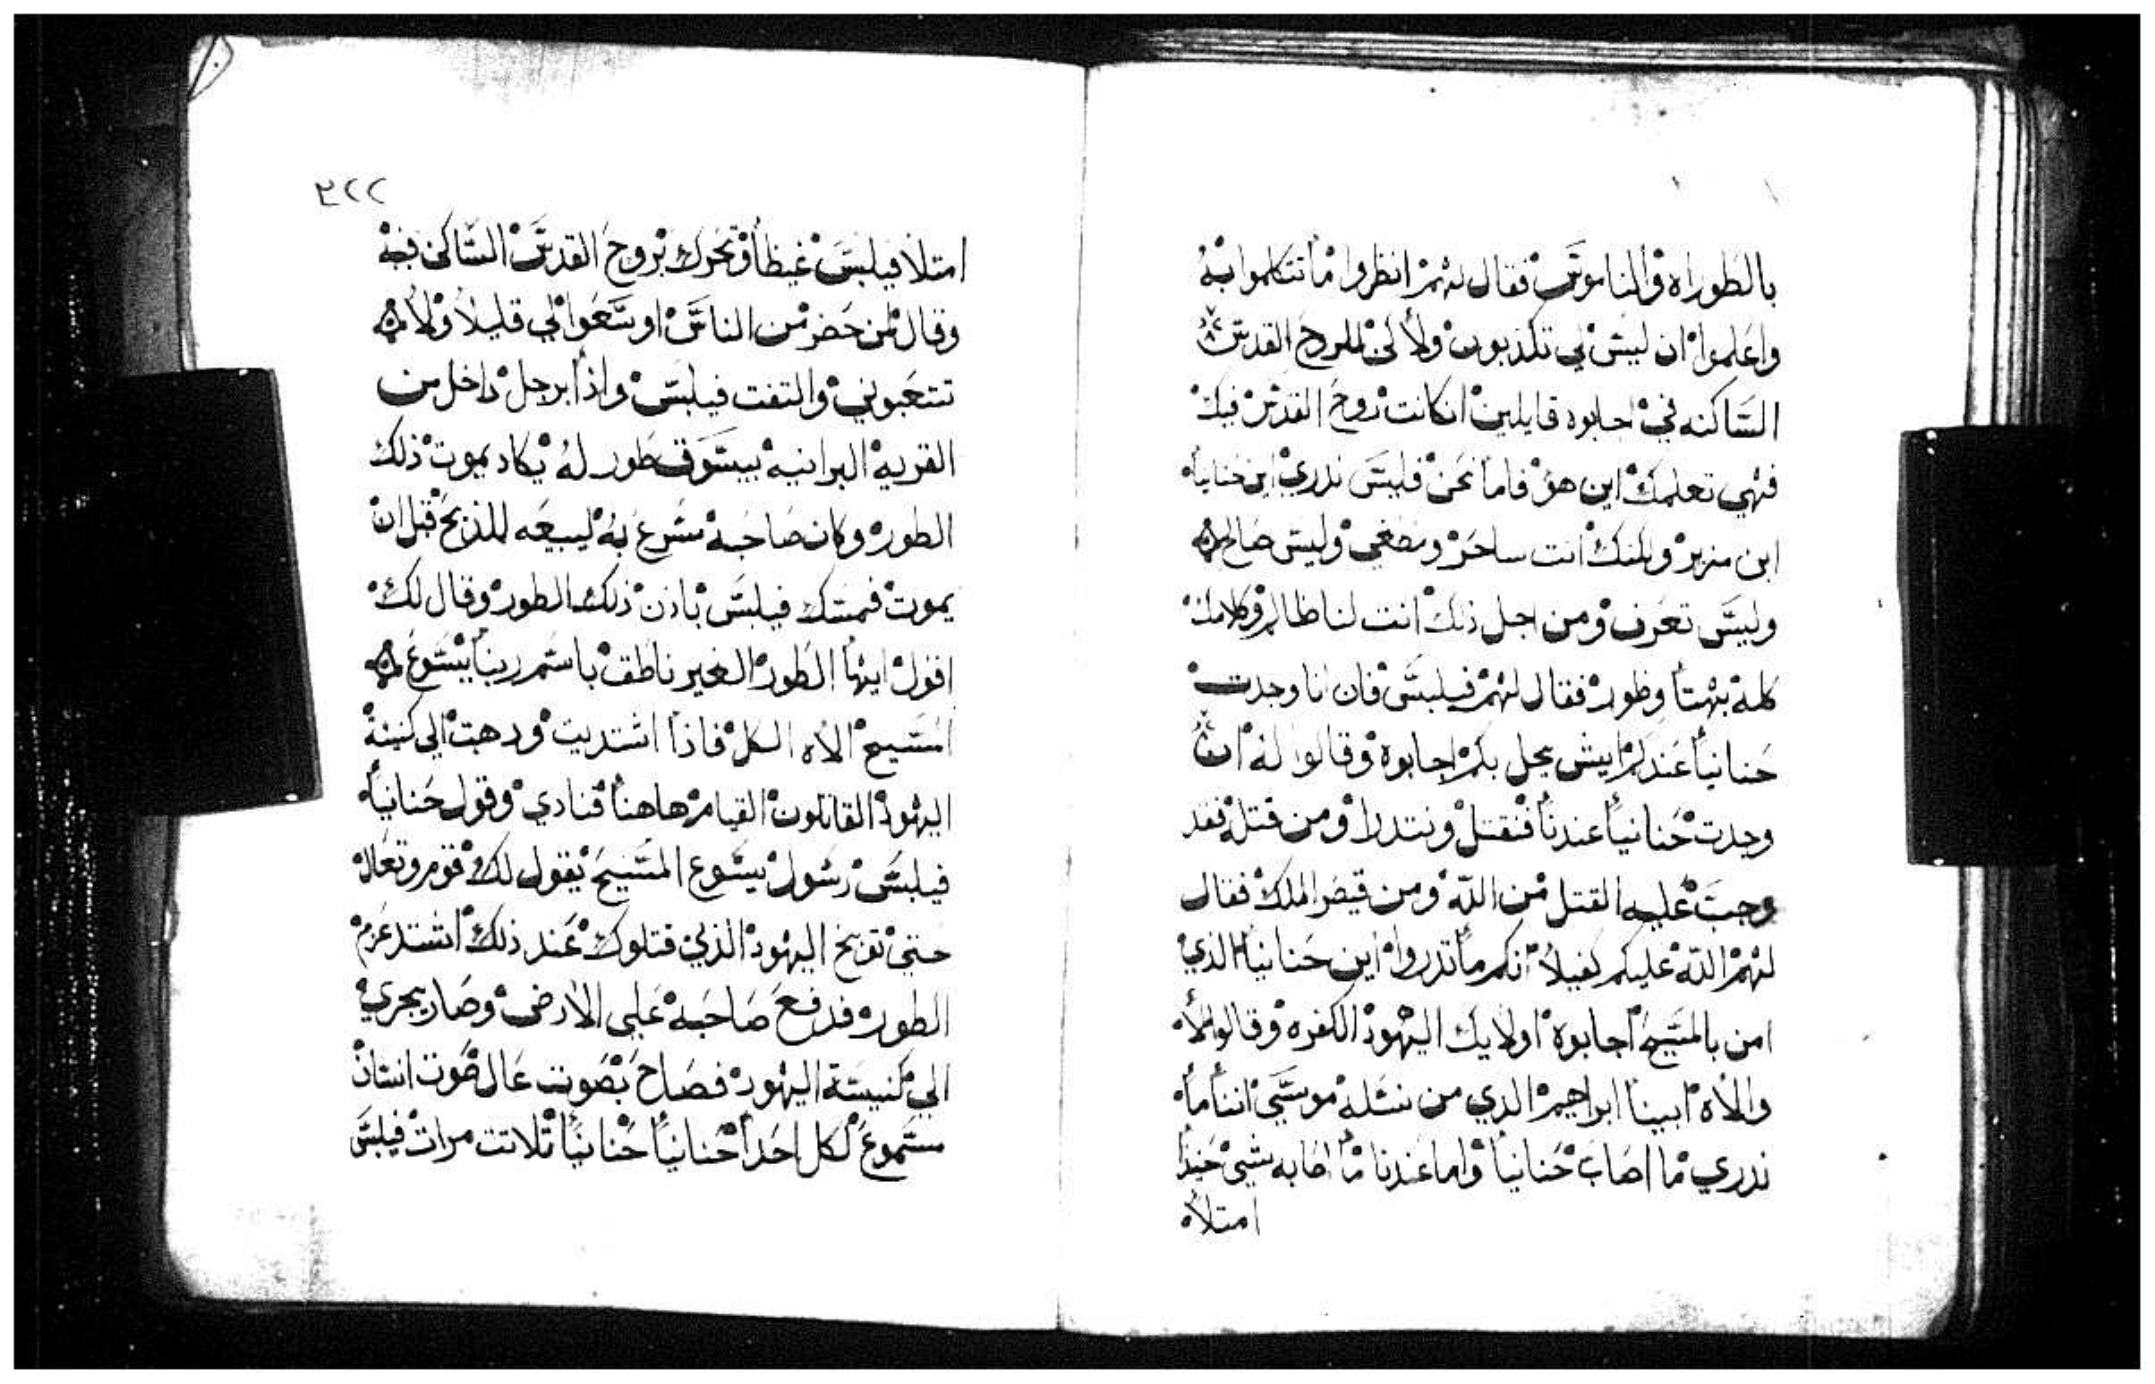 بالطوراه والناموس فقال لهم انظروا ما تتكلموا به
واعلموا ان ليس لي تكذبون ولا لكن للروح القدس
الساكنه في اجابوه قايلين ان كانت روح القدس فيك
فهي تعلمك اين هو فاما نحن فليس ندري اين حنانيا
ابن هو ولكنك انت ساحر ومطغي وليس صالح
وليس تعرف ومن اجل ذلك انت لنا ظالم وكلامك
كله بهتا وظور فقال لهم فيلبس فان انا وجدت
حنانيا عندكم ايش يحل بكم اجابوه وقالوا له ان
وجدت حنانيا عندنا فنقتل ومن قتل فقد
وجب عليه القتل من الله ومن قيصر الملك فقال
لهم الله عليكم كفيلا انكم ما تدروا اين حنانيا الذي
امن بالمسيح اجابوه اولايك اليهود الكفره وقالوا لا
والاه ابينا ابراهيم الذي من نسله موسي اننا ما
ندري ما اصاب حنانيا واما عندنا ما اصابه شي حنيذا
امتلا
٣٢٢
امتلا فيلبس غيظا وتحرك بروح القدس الساكن فيه
وقال لمن حضر من الناس اوسعوا لي قليلا ولا
تتعبوني والتفت فيلبس واذا برجل داخل من
القريه البرانيه بيسوق طور له يكاد يموت ذلك
الطور وكان صاحبه مسرع به ليبيعه للذبح قبل ان
يموت فمسك فيلبس باذن ذلك الطور وقال لك
اقول ايها الطور الغير ناطق باسم ربنا يسوع
المسيح الاه الكل فاذا اشتديت ودهبت الي كنيسة
اليهود القاتلون القيام هاهنا فنادي وقول حنانيا
فيلبس رسول يسوع المسيح يقول لك قوم وتعال
حتي توبخ اليهود الذين قتلوك عند ذلك اشتد عزم
الطور فدفع صاحبه علي الارض وصار يجري
الي كنيسة اليهود فصاح بصوت عال صوت انسان
مسموع لكل احدا حنانيا حنانيا تلاتت مرات فيلبس